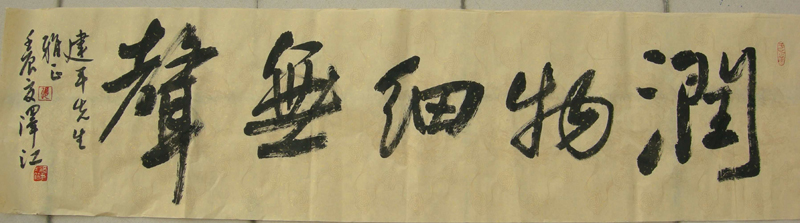 潤物細無聲
建平先生
雅正
壬辰夏澤江